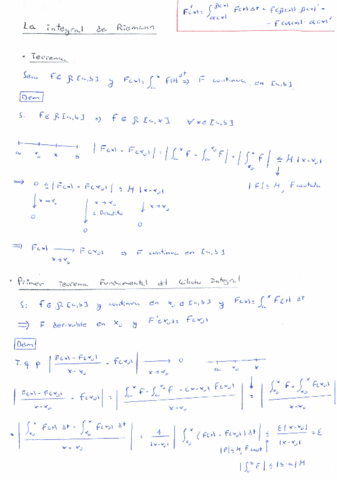 F'(x) = ∫_{α(x)}^{β(x)} f(t) dt = f(β(x)) β(x)' - f(α(x)) · α(x)'
La integral de Riemann
· Teorema
Sea f ∈ R[a,b] y F(x) = ∫_a^x f(t) dt ⇒ F continua en [a,b]
Dem
Si f ∈ R[a,b] ⇒ f ∈ R[a,x] ∀x ∈ [a,b]
|F(x) - F(x₀)| = |∫_a^x f - ∫_a^{x₀} f| = |∫_{x₀}^x f| ≤ M |x-x₀|
|f| ≤ M, f acotada
⇒ 0 ≤ |F(x) - F(x₀)| ≤ M |x-x₀|
x→x₀ x→x₀ x→x₀
0 0 0
⇒ F(x) → F(x₀) ⇒ F continua en [a,b]
x→x₀
· Primer Teorema Fundamental del Cálculo Integral
Si f ∈ R[a,b] y continua en x₀ ∈ [a,b] y F(x) = ∫_a^x f(t) dt
⇒ F derivable en x₀ y F'(x₀) = f(x₀)
Dem
T.q.p |(F(x) - F(x₀))/(x-x₀) - f(x₀)| → 0
x→x₀
|(F(x) - F(x₀))/(x-x₀) - f(x₀)| = |(∫_a^x f - ∫_a^{x₀} f - (x-x₀) f(x₀))/(x-x₀)| = |(∫_{x₀}^x f - ∫_{x₀}^x f(x₀))/(x-x₀)|
= |(∫_{x₀}^x f dt - ∫_{x₀}^x f(x₀) dt)/(x-x₀)| = 1/|x-x₀| |∫_{x₀}^x (f(t) - f(x₀)) dt| ≤ ε|x-x₀|/|x-x₀| = ε